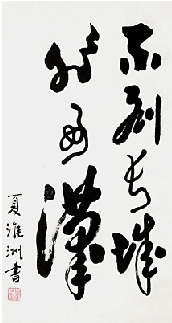 不到长城
非好漢
夏淮洲书